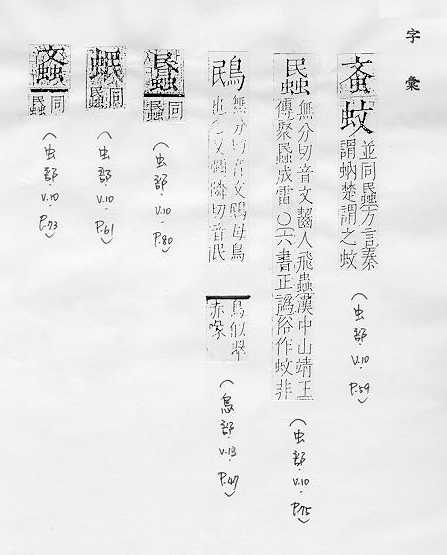 字彙
蚉蚊
並同䘇方言秦
謂蚋楚謂之蚊
(虫部 v.10 P.59)
䘇
無分切音文齧人飛蟲漢中山靖王
傳聚䘇成雷○六書正譌俗作蚊非
(虫部 v.10 P.75)
鴖
無分切音文鴖母鳥
也 又彌隣切音民
鳥似翠
赤喙
(鳥部 v.13 P.47)
䘇同
(虫部 v.10 P.80)
蟁同
(虫部 v.10 P.61)
䘇同
(虫部 v.10 P.73)